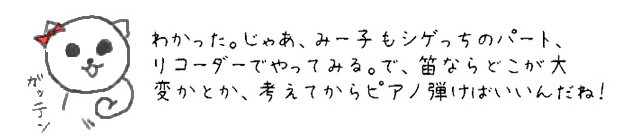 わかった。じゃあ、みー子もシゲっちのパート、
リコーダーでやってみる。で、笛ならどこが大
変かとか、考えてからピアノ弾けばいいんだね!
ガッテン